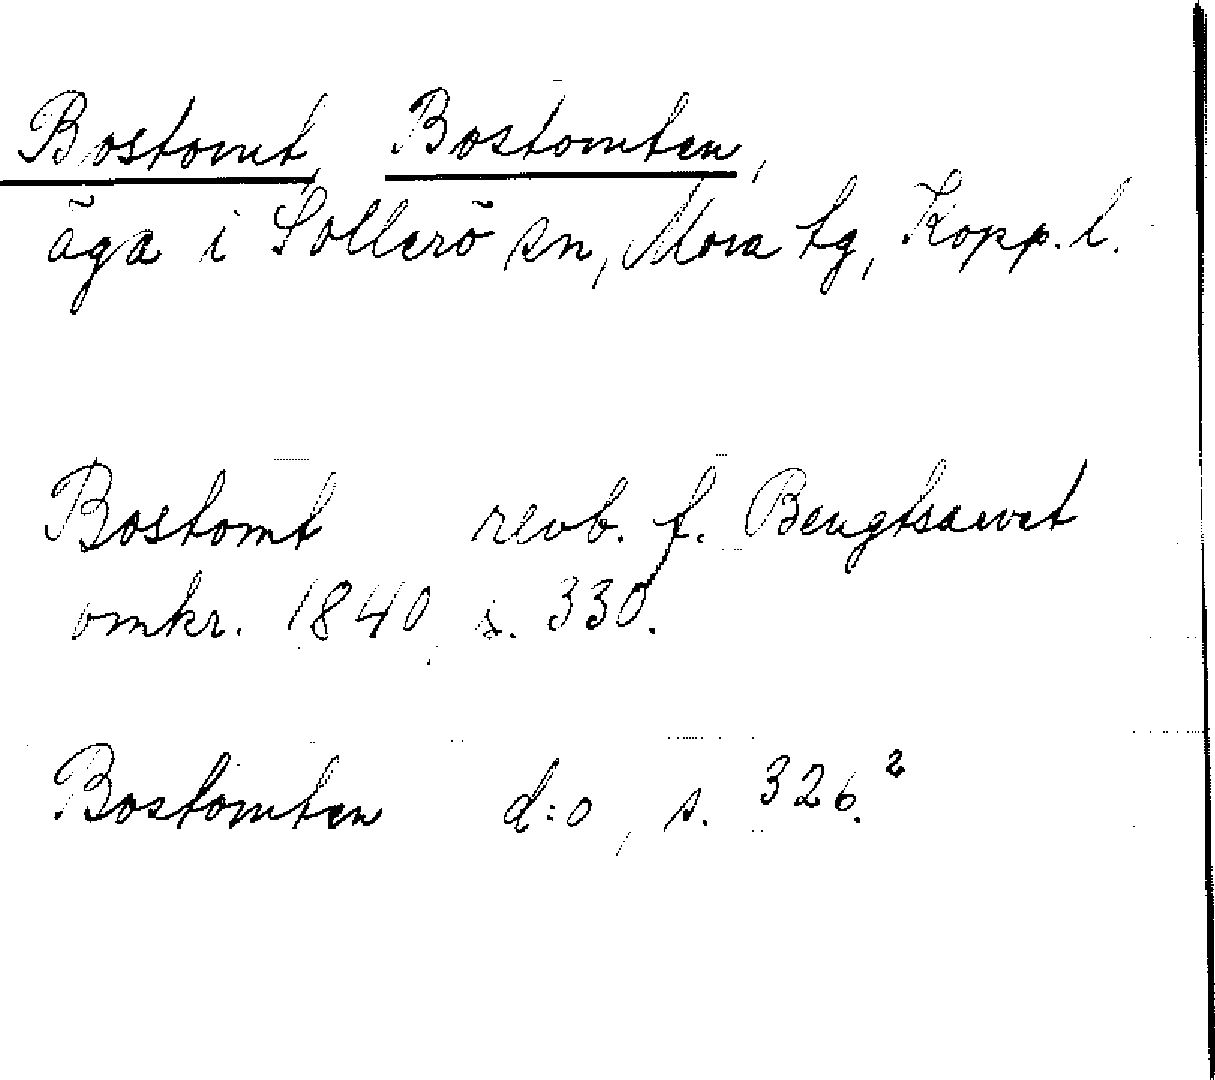 Bostomt, Bostomten,
äga i Sollerö sn, Mora tg, Kopp. l.
Bostomt revb. f. Bengtsarvet
omkr. 1840, s. 330.
Bostomten d:o, s. 326.²